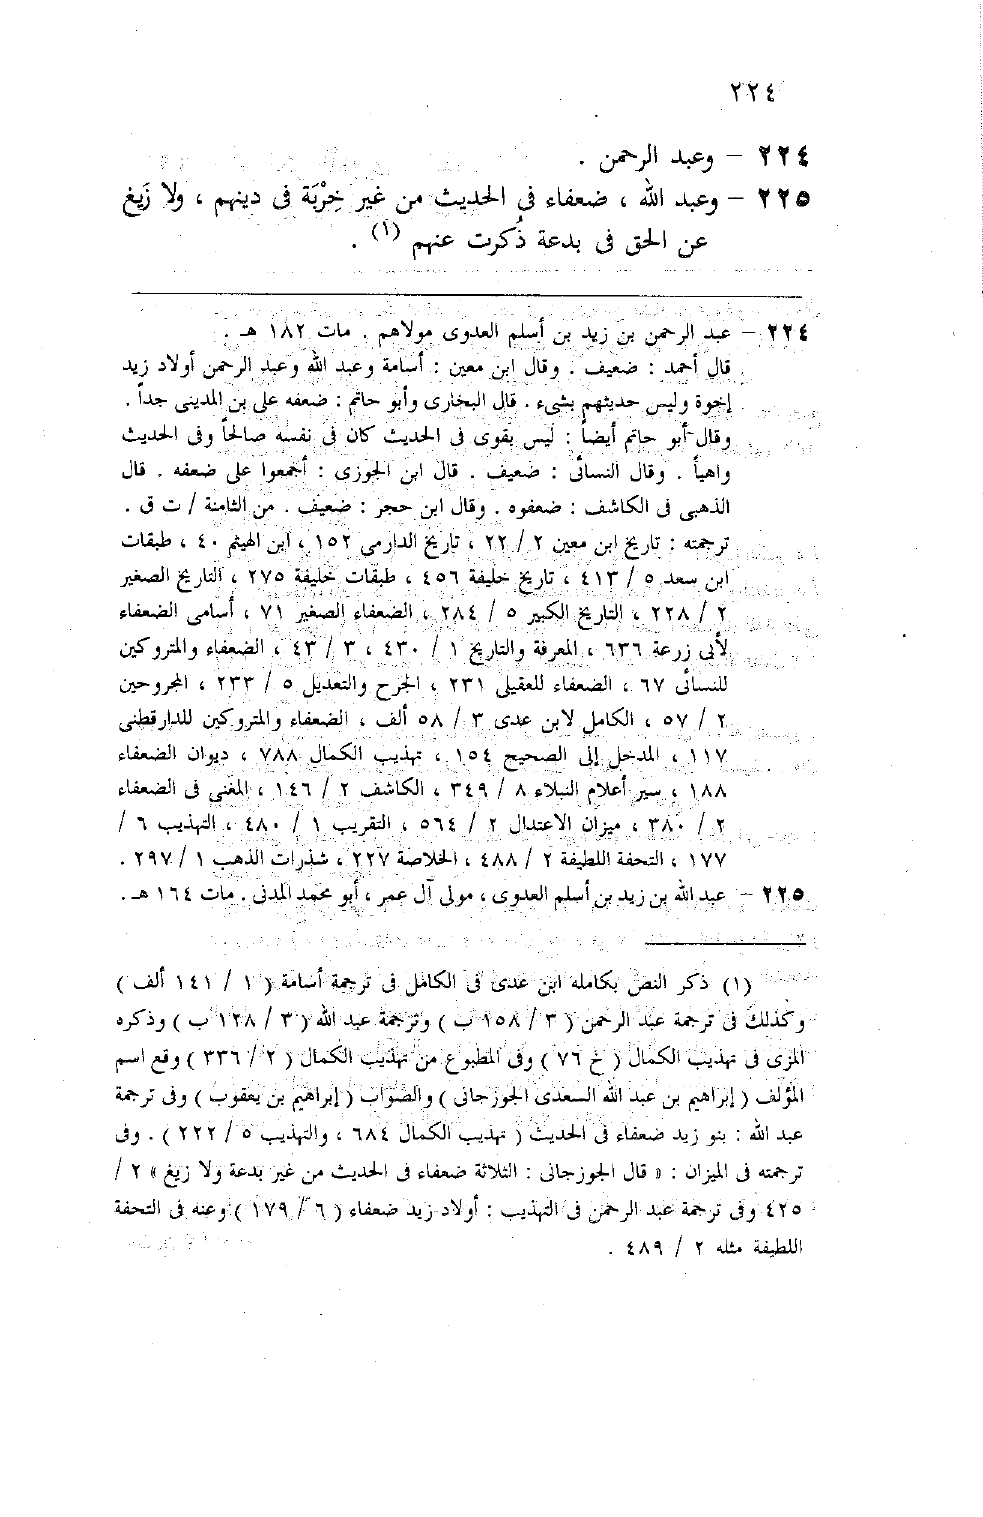 ٢٢٤
٢٢٤ – وعبد الرحمن .
٢٢٥ – وعبد الله ، ضعفاء فى الحديث من غير خِرْبَة فى دينهم ، ولا زَيغ
عن الحق فى بدعة ذُكرت عنهم (١) .
٢٢٤ – عبد الرحمن بن زيد بن أسلم العدوى مولاهم . مات ١٨٢ هـ .
قال أحمد : ضعيف . وقال ابن معين : أسامة وعبد الله وعبد الرحمن أولاد زيد
إخوة وليس حديثهم بشىء . قال البخارى وأبو حاتم : ضعفه على بن المدينى جداً .
وقال أبو حاتم أيضاً : ليس بقوى فى الحديث كان فى نفسه صالحاً وفى الحديث
واهياً . وقال النسائى : ضعيف . قال ابن الجوزى : أجمعوا على ضعفه . قال
الذهبى فى الكاشف : ضعفوه . وقال ابن حجر : ضعيف . من الثامنة / ت ق .
ترجمته : تاريخ ابن معين ٢ / ٢٢ ، تاريخ الدارمى ١٥٢ ، ابن الهيثم ٤٠ ، طبقات
ابن سعد ٥ / ٤١٣ ، تاريخ خليفة ٤٥٦ ، طبقات خليفة ٢٧٥ ، التاريخ الصغير
٢ / ٢٢٨ ، التاريخ الكبير ٥ / ٢٨٤ ، الضعفاء الصغير ٧١ ، أسامى الضعفاء
لأبى زرعة ٦٣٦ ، المعرفة والتاريخ ١ / ٤٣٠ ، ٣ / ٤٣ ، الضعفاء والمتروكين
للنسائى ٦٧ ، الضعفاء للعقيلى ٢٣١ ، الجرح والتعديل ٥ / ٢٣٣ ، المجروحين
٢ / ٥٧ ، الكامل لابن عدى ٣ / ٥٨ ألف ، الضعفاء والمتروكين للدارقطنى
١١٧ ، المدخل إلى الصحيح ١٥٤ ، تهذيب الكمال ٧٨٨ ، ديوان الضعفاء
١٨٨ ، سير أعلام النبلاء ٨ / ٣٤٩ ، الكاشف ٢ / ١٤٦ ، المغنى فى الضعفاء
٢ / ٣٨٠ ، ميزان الاعتدال ٢ / ٥٦٤ ، التقريب ١ / ٤٨٠ ، التهذيب ٦ /
١٧٧ ، التحفة اللطيفة ٢ / ٤٨٨ ، الخلاصة ٢٢٧ ، شذرات الذهب ١ / ٢٩٧ .
٢٢٥ – عبد الله بن زيد بن أسلم العدوى ، مولى آل عمر ، أبو محمد المدنى . مات ١٦٤ هـ .
(١) ذكر النص بكامله ابن عدى فى الكامل فى ترجمة أسامة ( ١ / ١٤١ ألف )
وكذلك فى ترجمة عبد الرحمن ( ٣ / ١٥٨ ب ) وترجمة عبد الله ( ٣ / ١٢٨ ب ) وذكره
المزى فى تهذيب الكمال ( خ ٧٦ ) وفى المطبوع من تهذيب الكمال ( ٢ / ٣٣٦ ) وقع اسم
المؤلف ( إبراهيم بن عبد الله السعدى الجوزجانى ) والصواب ( إبراهيم بن يعقوب ) وفى ترجمة
عبد الله : بنو زيد ضعفاء فى الحديث ( تهذيب الكمال ٦٨٤ ، والتهذيب ٥ / ٢٢٢ ) . وفى
ترجمته فى الميزان : « قال الجوزجانى : الثلاثة ضعفاء فى الحديث من غير بدعة ولا زيغ » ٢ /
٤٢٥ وفى ترجمة عبد الرحمن فى التهذيب : أولاد زيد ضعفاء ( ٦ / ١٧٩ ) وعنه فى التحفة
اللطيفة مثله ٢ / ٤٨٩ .